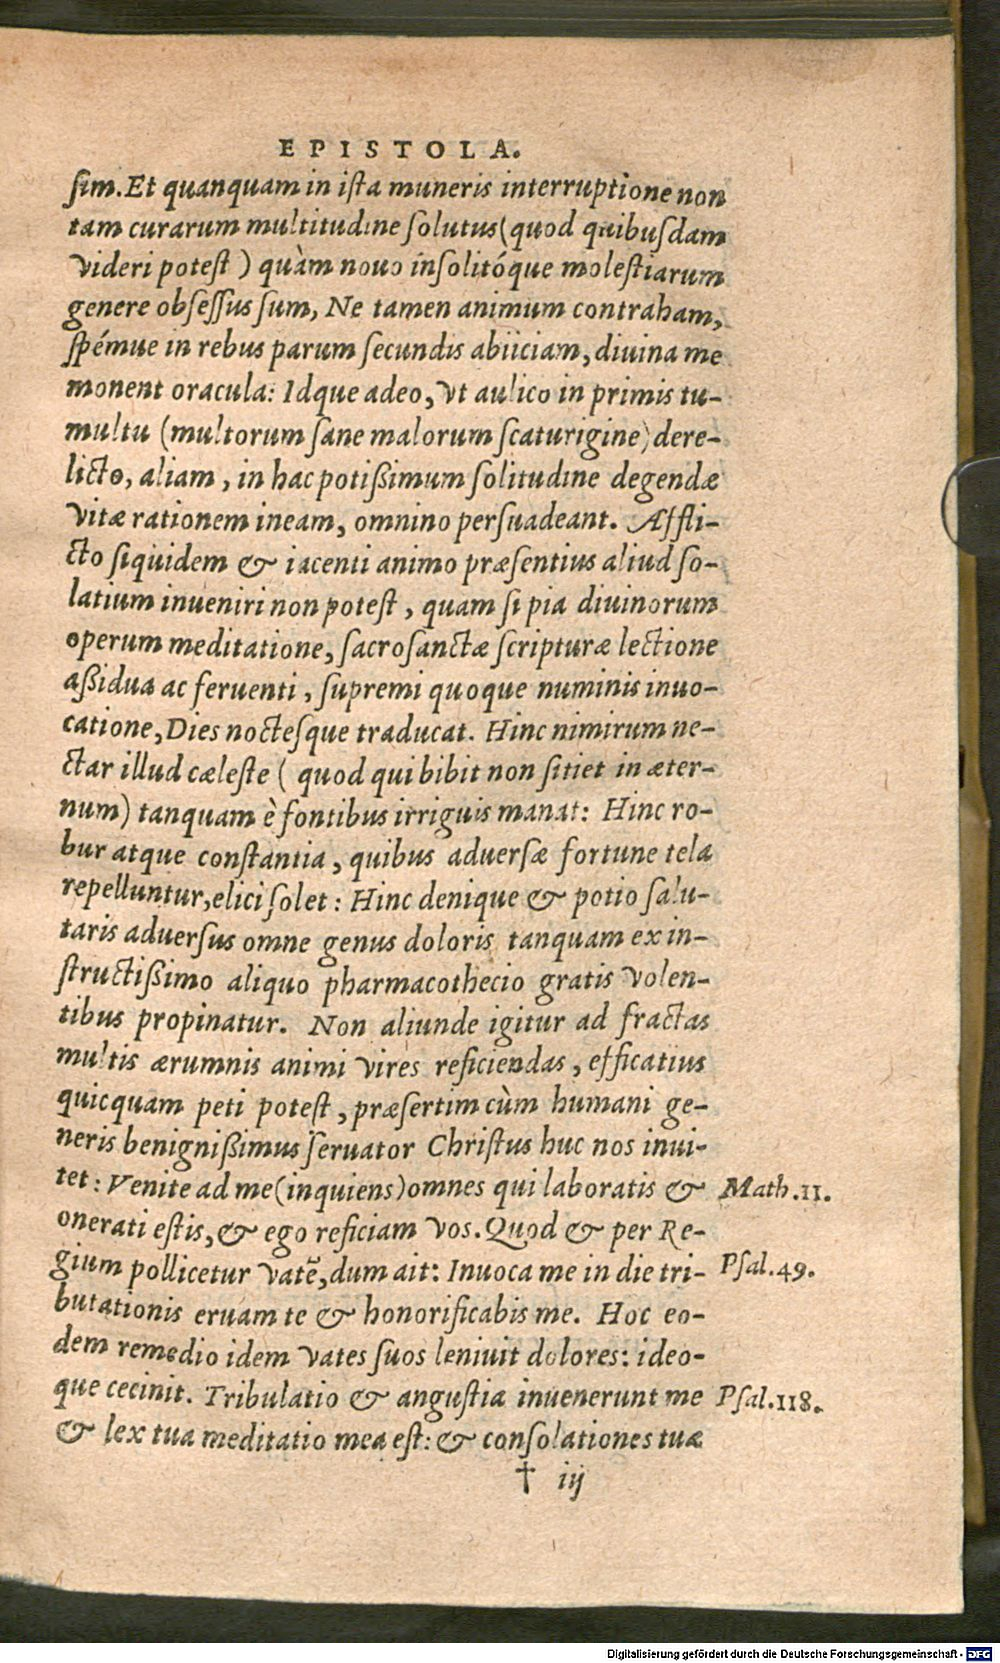 EPISTOLA.
sim. Et quanquam in ista muneris interruptione non
tam curarum multitudine solutus (quod quibusdam
videri potest) quàm nouo insolitóque molestiarum
genere obsessus sum, Ne tamen animum contraham,
spémue in rebus parum secundis abiiciam, diuina me
monent oracula: Idque adeo, vt aulico in primis tu-
multu (multorum sane malorum scaturigine) dere-
licto, aliam, in hac potißimum solitudine degendæ
vitæ rationem ineam, omnino persuadeant. Affli-
cto siquidem & iacenti animo præsentius aliud so-
latium inueniri non potest, quam si pia diuinorum
operum meditatione, sacrosanctæ scripturæ lectione
aßidua ac feruenti, supremi quoque numinis inuo-
catione, Dies noctesque traducat. Hinc nimirum ne-
ctar illud cæleste ( quod qui bibit non sitiet in æter-
num) tanquam è fontibus irriguis manat: Hinc ro-
bur atque constantia, quibus aduersæ fortune tela
repelluntur, elici solet: Hinc denique & potio salu-
taris aduersus omne genus doloris tanquam ex in-
structißimo aliquo pharmacothecio gratis volen-
tibus propinatur. Non aliunde igitur ad fractas
multis ærumnis animi vires reficiendas, efficatius
quicquam peti potest, præsertim cùm humani ge-
neris benignißimus seruator Christus huc nos inui-
tet: Venite ad me (inquiens) omnes qui laboratis & Math. 11.
onerati estis, & ego reficiam vos. Quod & per Re-
gium pollicetur vatẽ, dum ait: Inuoca me in die tri- Psal. 49.
butationis eruam te & honorificabis me. Hoc eo-
dem remedio idem vates suos leniuit dolores: ideo-
que cecinit. Tribulatio & angustia inuenerunt me Psal. 118.
& lex tua meditatio mea est: & consolationes tuæ
† iij
Digitalisierung gefördert durch die Deutsche Forschungsgemeinschaft - DFG